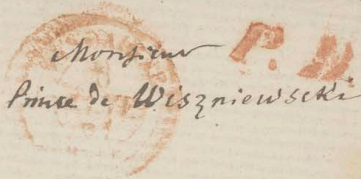 Monsieur P. D.
Prince de Wiszniewscki